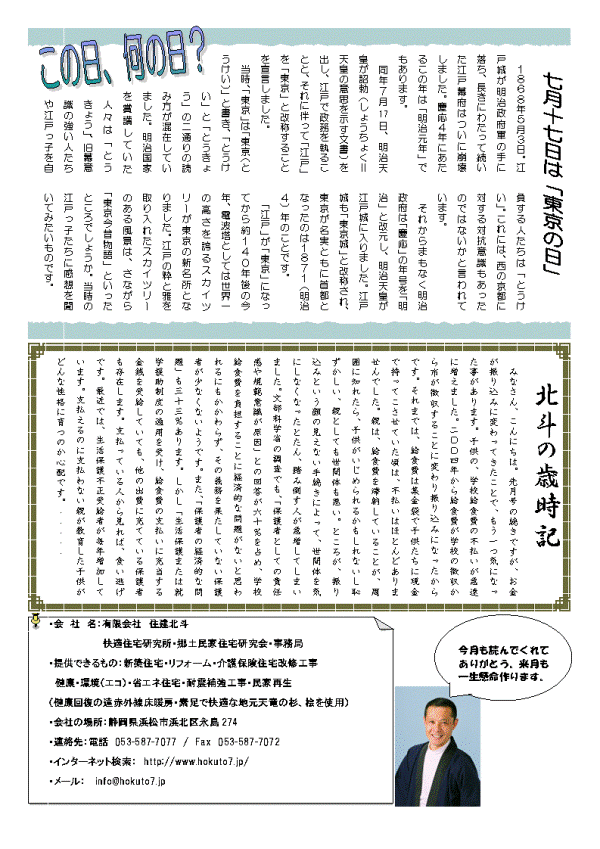 この日、何の日？
七月十七日は「東京の日」
１８６８年５月３日。江
戸城が明治政府軍の手に
落ち、長きにわたって続い
た江戸幕府はついに崩壊
しました。慶応４年にあた
るこの年は「明治元年」で
もあります。
同年７月１７日、明治天
皇が詔勅（しょうちょく＝
天皇の意思を示す文書）を
出し、江戸で政務を執るこ
とと、それに伴って「江戸」
を「東京」と改称すること
を宣言しました。
当時、「東京」は「東亰（と
うけい）」と書き、「とうけ
い」と「とうきょ
う」の二通りの読
み方が混在してい
ました。明治国家
を賞讃していた
人々は「とう
きょう」、旧幕意
識の強い人たち
や江戸っ子を自
負する人たちは「とうけ
い」。これには、西の京都に
対する対抗意識もあった
のではないかと言われて
います。
それからまもなく明治
政府は「慶応」の年号を「明
治」と改元し、明治天皇が
江戸城に入りました。江戸
城も「東京城」と改称され、
東京が名実ともに首都と
なったのは１８７１（明治
４）年のことです。
「江戸」が「東京」になっ
てから約１４０年後の今
年、電波塔としては世界一
の高さを誇るスカイツ
リーが東京の新名所とな
りました。江戸の粋と雅を
取り入れたスカイツリー
のある風景は、さながら
「東京今昔物語」といった
ところでしょうか。当時の
江戸っ子たちに感想を聞
いてみたいものです。
北斗の歳時記
みなさん、こんにちは。先月号の続きですが、お金
が振り込みに変わってきたことで、もう一つ気になっ
た事があります。子供の、学校給食費の不払いが急速
に増えました。二〇〇四年から給食費が学校の徴収か
ら市が徴収することに変わり振り込みになったから
です。それまでは、給食費は集金袋で子供たちに現金
で持ってこさせていた頃は、不払いはほとんどありま
せんでした。親は、給食費を滞納していることが、周
囲に知れたら、子供がいじめられるかもしれないし恥
ずかしい、親としても世間体も悪い。ところが、振り
込みという顔の見えない手続きによって、世間体を気
にしなくなったとたん、踏み倒す人が急増してしまい
ました。文部科学省の調査でも、「保護者としての責任
感や規範意識が原因」との回答が六十％を占め、学校
給食費を負担することに経済的な問題がないと思わ
れるにもかかわらず、その義務を果たしていない保護
者が少なくないようです。また「保護者の経済的な問
題」も三十三％あります。しかし「生活保護または就
学援助制度の適用を受け、給食費の支払いに充当する
金銭を受給していても、他の出費に充てている保護者
も存在します。支払っている人から見れば、食い逃げ
です。最近では、生活保護不正受給者が毎年増加して
います。支払えるのに支払わない親が教育した子供が
どんな性格に育つのか心配です。．．．．．
・会　社　名：有限会社　住建北斗
快適住宅研究所・郷土民家住宅研究会・事務局
・提供できるもの：新築住宅・リフォーム・介護保険住宅改修工事
健康・環境（エコ）・省エネ住宅・耐震補強工事・民家再生
（健康回復の遠赤外線床暖房・素足で快適な地元天竜の杉、桧を使用）
・会社の場所：静岡県浜松市浜北区永島 274
・連絡先：電話　053-587-7077 / Fax　053-587-7072
・インターネット検索：　http://www.hokuto7.jp/
・メール：　info@hokuto7.jp
今月も読んでくれて
ありがとう、来月も
一生懸命作ります。